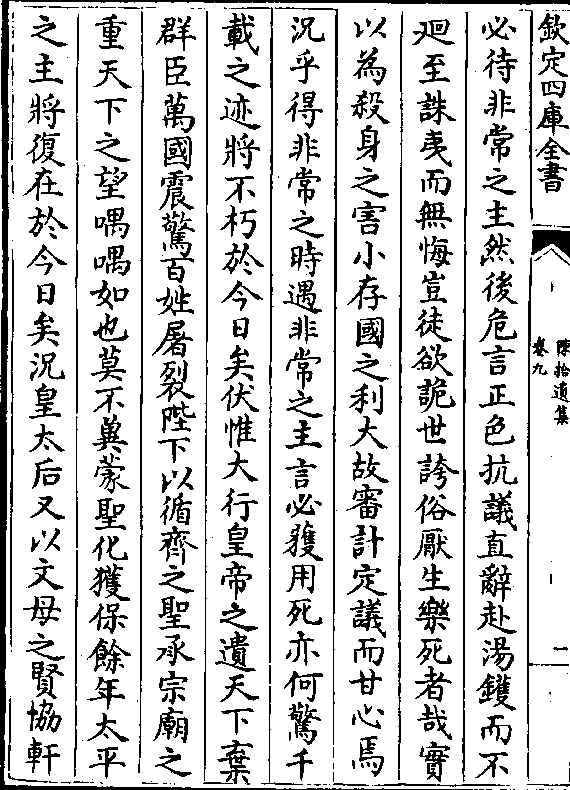 欽定四庫全書
陳拾遺集
卷九
一
必待非常之主然後危言正色抗議直辭赴湯鑊而不
廻至誅夷而無悔豈徒欲詭世誇俗厭生樂死者哉實
以為殺身之害小存國之利大故審計定議而甘心焉
況乎得非常之時遇非常之主言必獲用死亦何驚千
載之迹將不朽於今日矣伏惟大行皇帝之遺天下棄
群臣萬國震驚百姓屠裂陛下以循齊之聖承宗廟之
重天下之望喁喁如也莫不冀蒙聖化獲保餘年太平
之主將復在於今日矣況皇太后又以文母之賢協軒